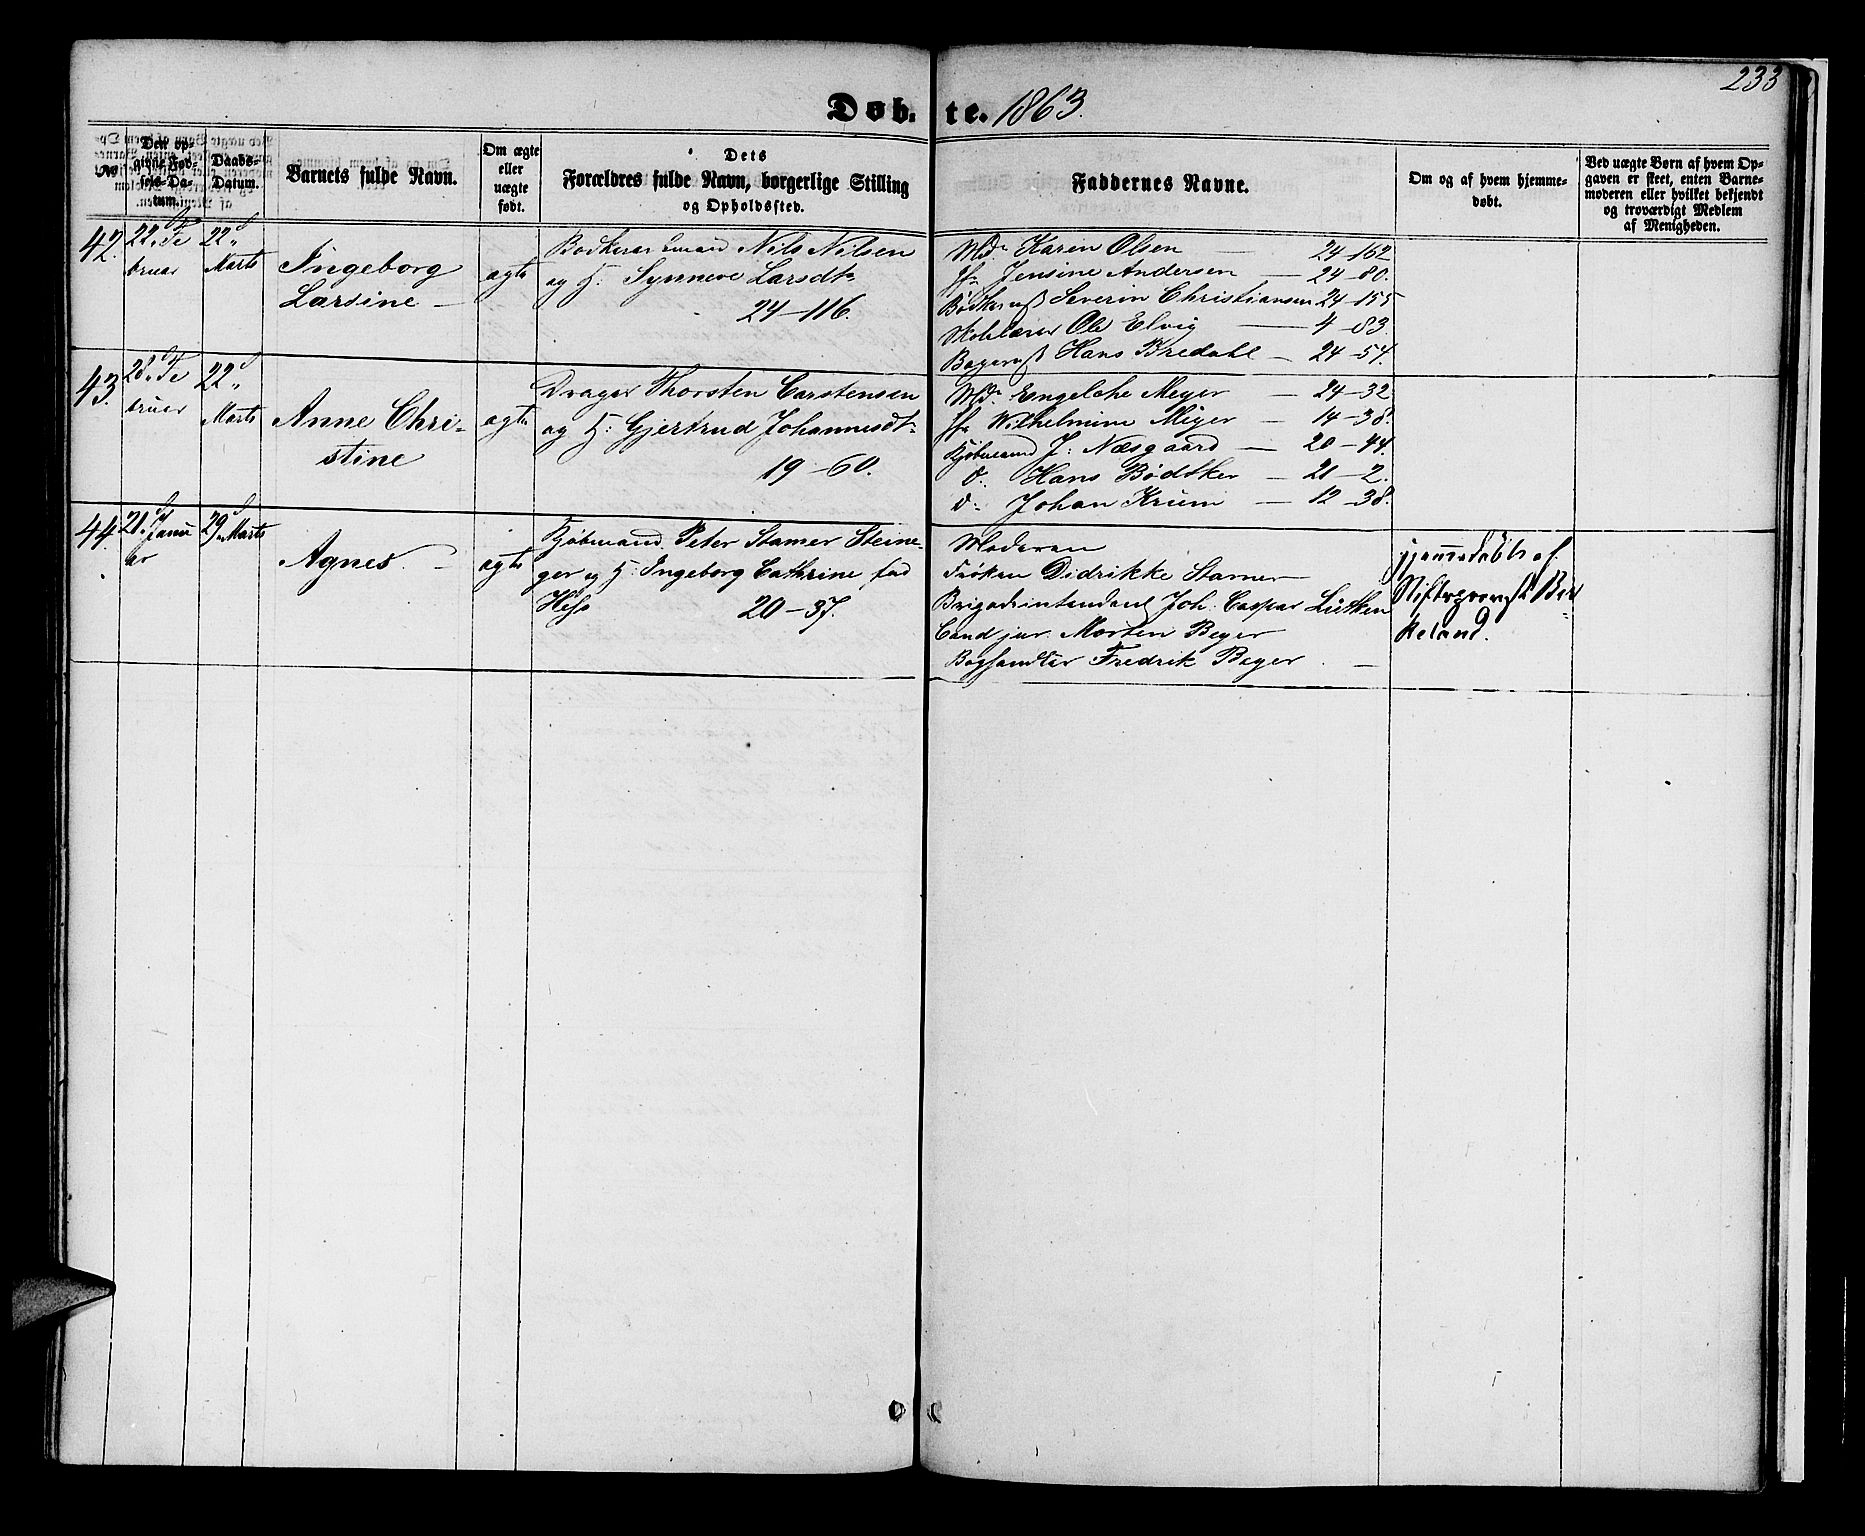 233
Døbte. 1863.
No
Den op-
givne Fød-
sels-Da-
tum.
Daabs-
Datum.
Barnets fulde Navn.
Om ægte
eller
uægte
født.
Dets
Forældres fulde Navn, borgerlige Stilling
og Opholdssted.
Faddernes Navne.
Om og af hvem hjemme-
døbt.
Ved uægte Børn af hvem Op-
gaven er skeet, enten Barne-
moderen eller hvilket bekjendt
og troværdigt Medlem
af Menigheden.
42.
22. Fe
bruar
22
Marts
Ingeborg
Larsine
ægte
Nils Nilsen
og H: Synneve Larsdtr
24-116.
Md. Karen Olsen 24-162
Jfr Jensine Andersen 24-80.
Severin Christiansen 24-155
Skolelærer Ole Elvig 4-83.
Hans Bredahl 24-54.
43.
28. Fe
bruar
22
Marts
Anne Chri-
stine
ægte
Drager Thorsten Carstensen
og H: Gjertrud Johannesdtr
19-60.
Md. Engelche Meyer 24-32
Jfr Wilhelmine Meyer 14-38.
Kjøbmand J: Næsgaard 20-44.
d: Hans Bødtker 21-2.
d: Johan Krum 12-38.
44.
21. Janu
ar
29. Marts
Agnes.
ægte
Kjøbmand Peter Stamer Steine-
ger og H: Ingeborg Cathrine, fød
Hess 20-37.
Moderen
Frøken Didrikke Stamer
Brigadeintendant Joh. Caspar Lütken
Cand jur. Morten Beyer
Boghandler Fredrik Beyer
hjemmedøbt af
Stiftsprovst Bir-
keland.